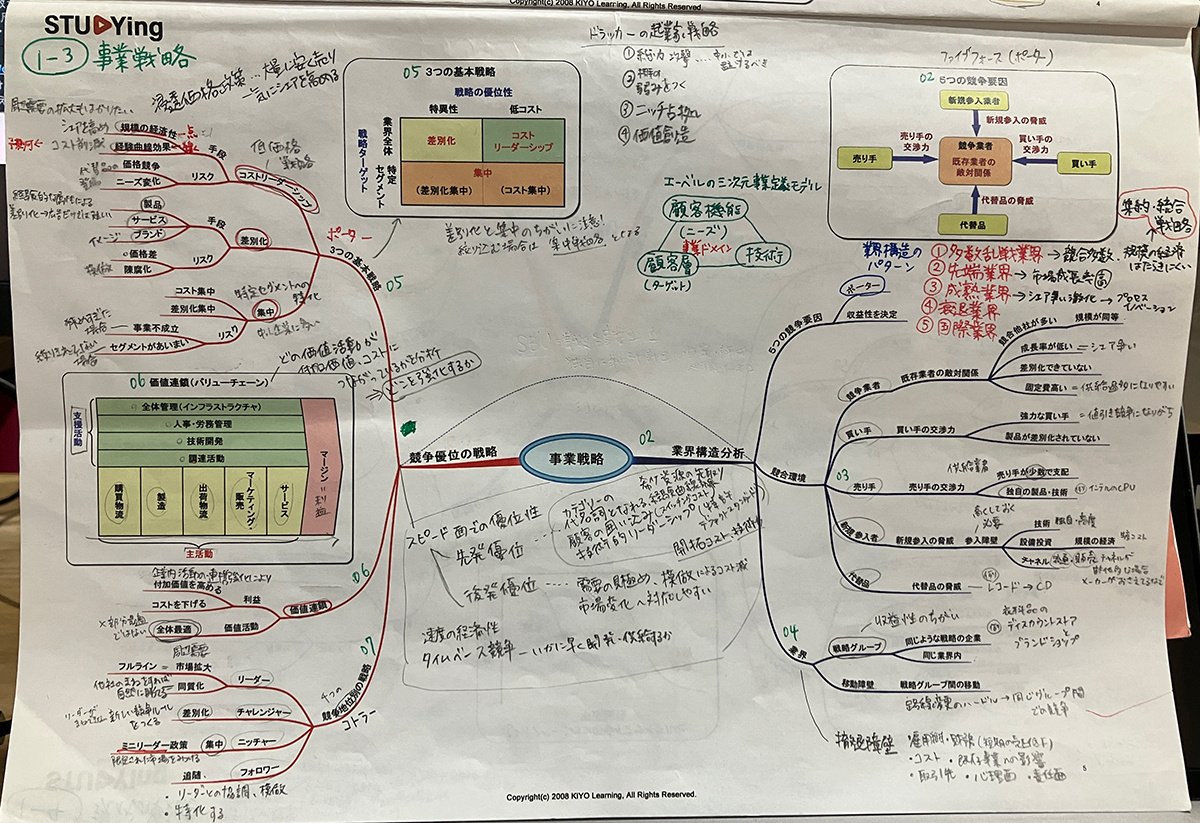 Copyright(c) 2008 KIYO Learning, All Rights Reserved.
4
STUDYing
1-3 事業戦略
浸透価格政策…大量に安く売り
一気にシェアを高める
05 3つの基本戦略
戦略の優位性
特異性 低コスト
戦略ターゲット
業界全体
特定セグメント
差別化
コストリーダーシップ
集中
(差別化集中) (コスト集中)
差別化と集中のちがいに注意!
絞り込む場合は集中戦略となる
ドラッカーの起業家戦略
①総力
②
弱みをつく
③ニッチ占拠
④価値創造
エーベルの三次元事業定義モデル
顧客機能
(ニーズ)
事業ドメイン
顧客層
(ターゲット)
技術
ファイブフォース(ポーター)
02 5つの競争要因
新規参入業者
新規参入の脅威
売り手の交渉力
買い手の交渉力
売り手
競争業者
既存業者の敵対関係
買い手
代替品の脅威
代替品
集約・統合戦略
業界構造のパターン
①多数乱戦業界→競合多数、規模の経済
はたらきにくい
②先端業界→市場成長
③成熟業界→シェア争い激化→プロセスイノベーション
④衰退業界
⑤国際業界
シェアを高め
規模の経済性
コスト削減
経験曲線効果
手段
価格競争
ニーズ変化
リスク
コストリーダーシップ
低価格戦略
製品
サービス
イメージ
ブランド
手段
差別化
価格差
模倣
陳腐化
リスク
コスト集中
差別化集中
特定セグメントへの特化
集中
中小企業に多い
事業不成立
セグメントがあいまい
リスク
ポーター
3つの基本戦略
05
どの価値活動が
付加価値、コストに
つながっているかを分析
⇒どこを強化するか
06 価値連鎖(バリューチェーン)
支援活動
全体管理(インフラストラクチャ)
人事・労務管理
技術開発
調達活動
購買物流
製造
出荷物流
マーケティング・販売
サービス
マージン=利益
主活動
競争優位の戦略
事業戦略
02
業界構造分析
企業内活動の連携強化により
付加価値を高める
コストを下げる
利益
×部分最適ではない
全体最適
価値活動
価値連鎖
06
07
4つの
競争地位別の戦略
コトラー
フルライン=市場拡大
同質化
リーダー
差別化
新しい競争ルールをつくる
チャレンジャー
ミニリーダー政策
集中
ニッチャー
限定された市場を
追随
フォロワー
・リーダーとの協調、模倣
・特化する
スピード面での優位性
先発優位
カテゴリーの
代名詞となれる
希少資源の先取り
経験曲線効果
顧客の囲い込み(スイッチングコスト)
技術的リーダーシップ(特許
デファクトスタンダード)
開拓コスト、技術
後発優位……需要の見極め、模倣によるコスト減
市場変化へ対応しやすい
速度の経済性
タイムベース競争―いかに早く開発・供給するか
ポーター
収益性を決定
5つの競争要因
競合環境
03
競争業者
既存業者の敵対関係
競合他社が多い
規模が同等
成長率が低い―シェア争い
差別化できていない
固定費高い=供給過多になりやすい
買い手
買い手の交渉力
強力な買い手=値引き競争になりがち
製品が差別化されていない
供給業者
売り手
売り手の交渉力
売り手が少数で支配
独自の製品・技術
インテルのCPU
高くしておく必要
新規参入者
新規参入の脅威
参入障壁
技術
独自・高度
設備投資
規模の経済
チャネル
代替品
代替品の脅威
レコード→CD
04
業界
収益性のちがい
戦略グループ
同じような戦略の企業
同じ業界内
ディスカウントストア
ブランドショップ
移動障壁
戦略グループ間の移動
路線変更のハードル→同じグループ間での競争
撤退障壁
・コスト・既存事業への影響
・取引先・心理面・責任面
5
Copyright(c) 2008 KIYO Learning, All Rights Reserved.